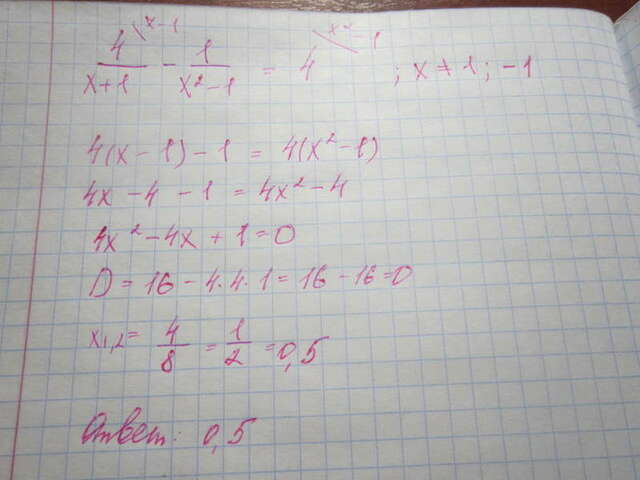 4\x-1/x+1 - 1/x²-1 = 4\x²-1 ; x ≠ 1; -1
4(x-1)-1 = 4(x²-1)
4x-4-1 = 4x²-4
4x²-4x+1=0
D=16-4·4·1=16-16=0
x1,2= 4/8 = 1/2 =0,5
Ответ: 0,5